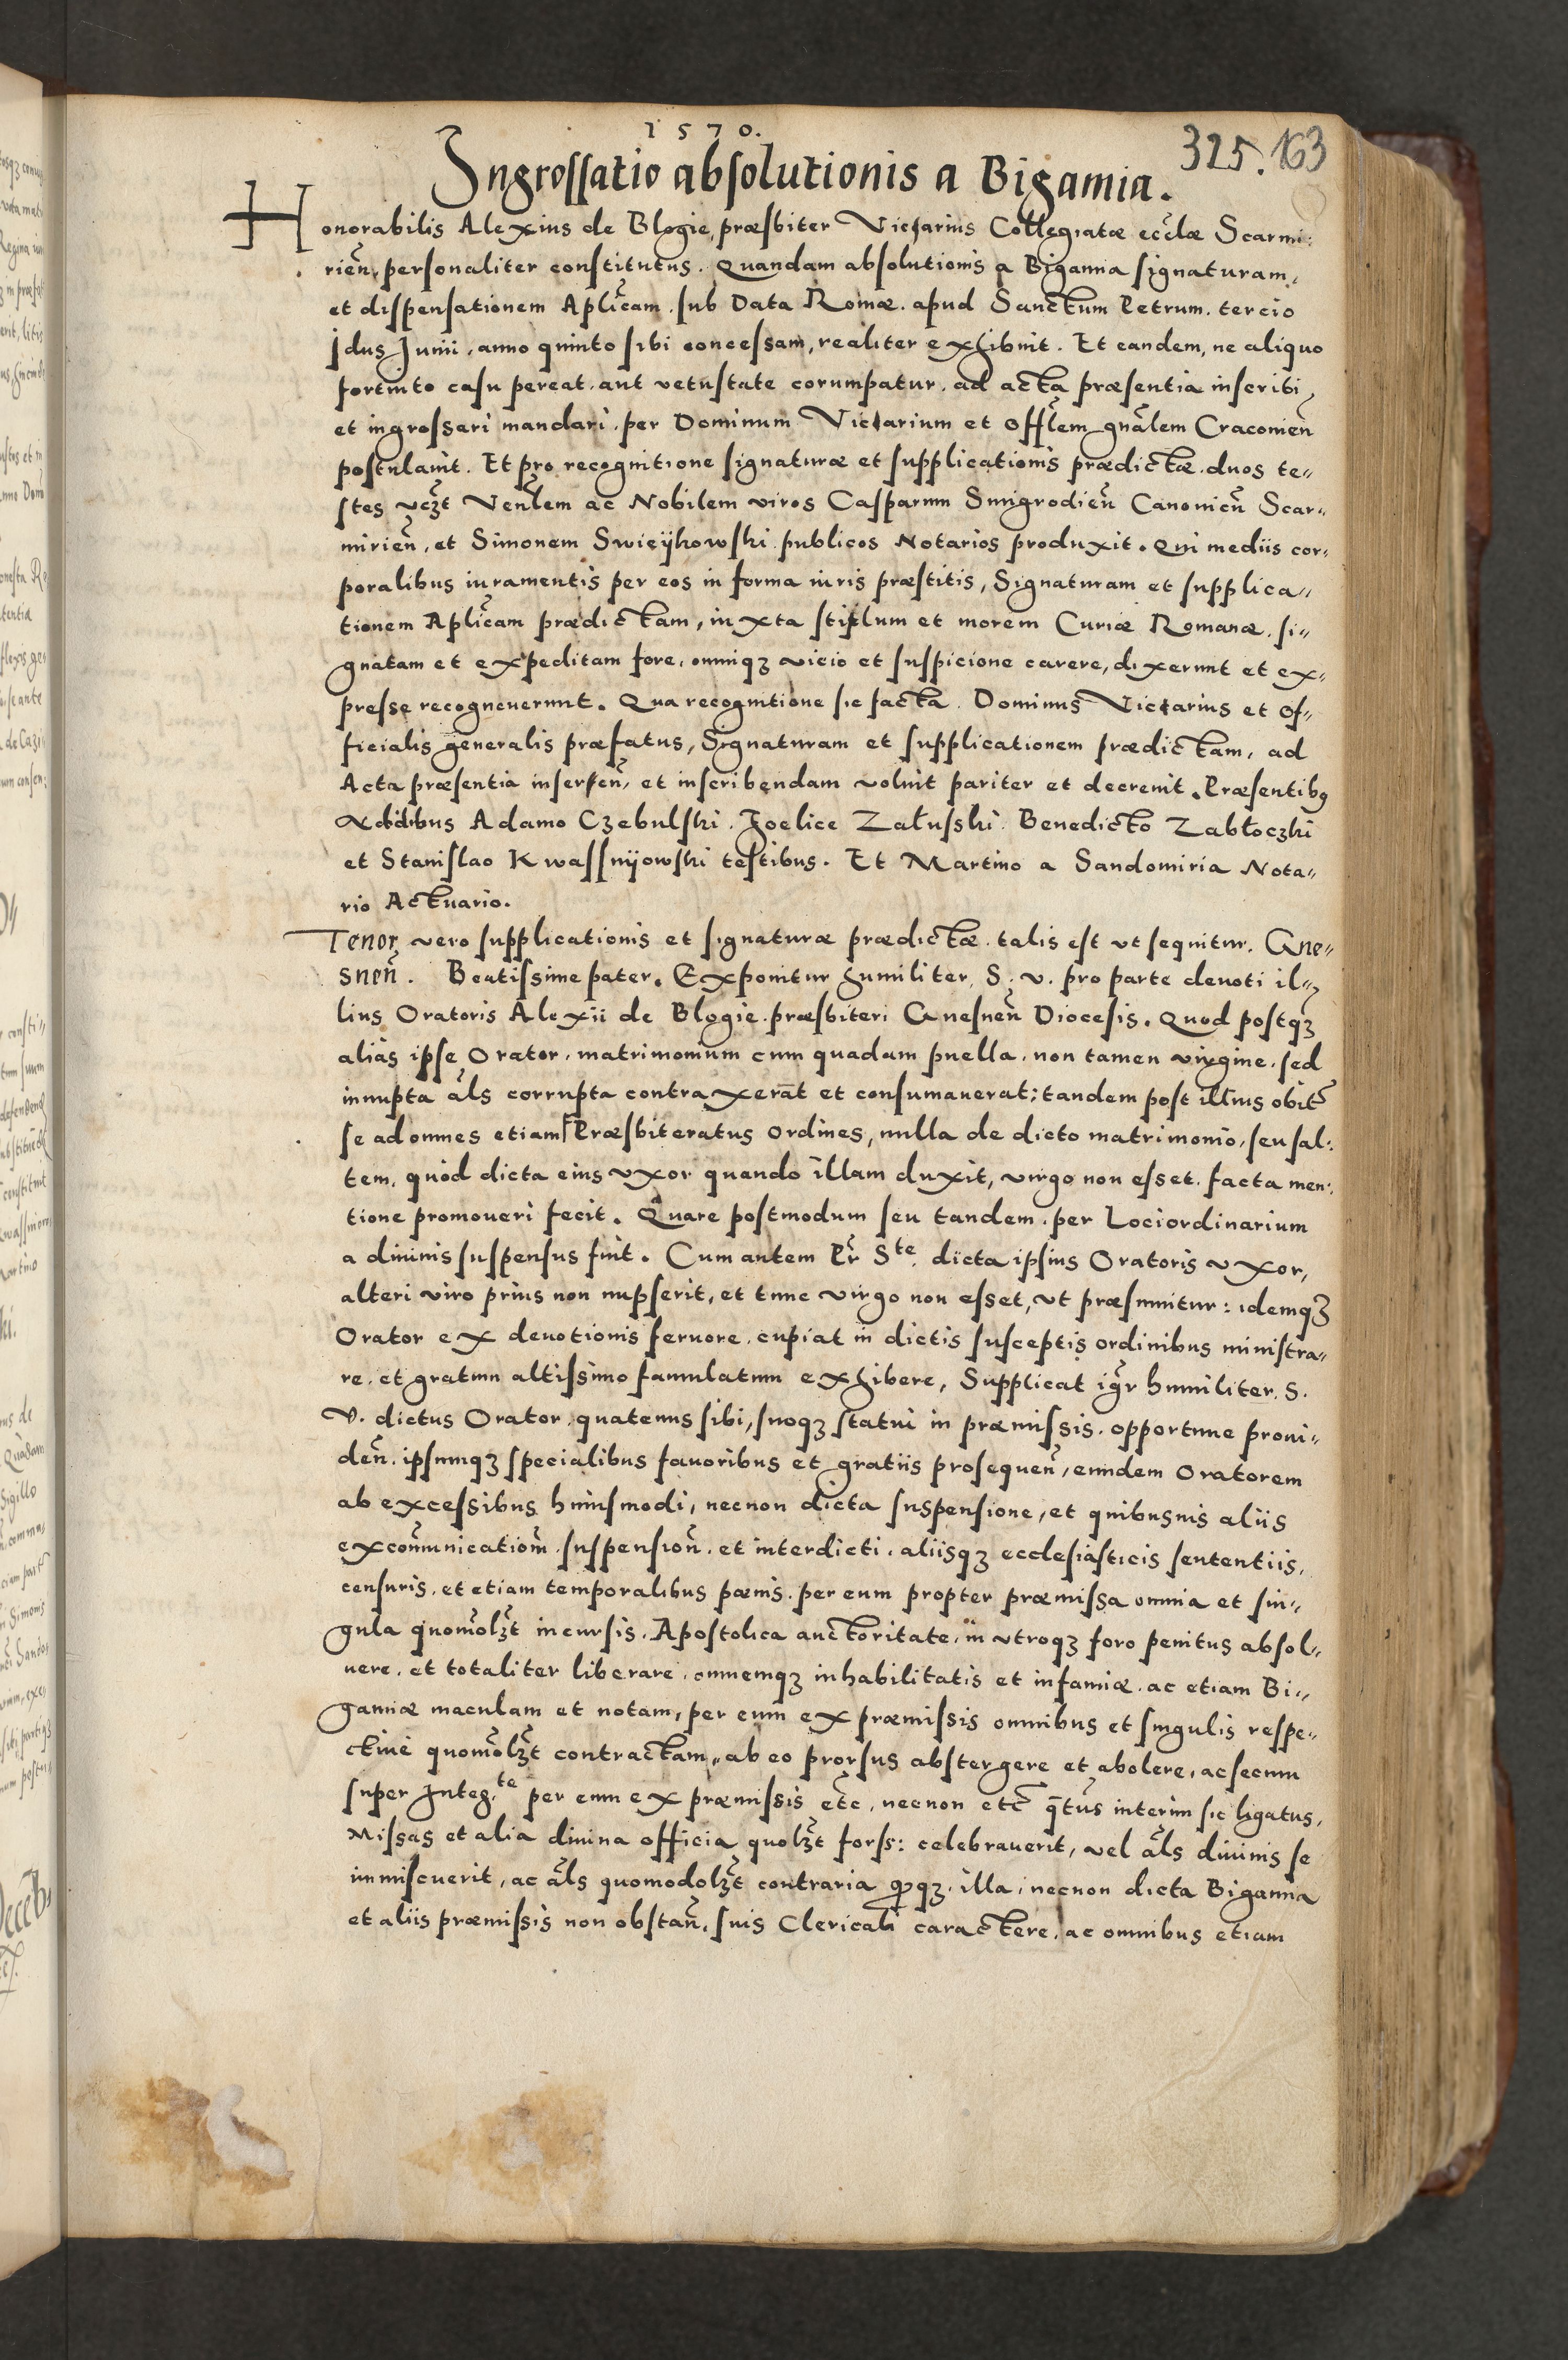 1570.
325. 163
Ingrossatio absolutionis a Bigamia.
Honorabilis Alexius de Blogie, præsbiter Vicarius Collegiatæ eccłæ Scarmi:
rieñ, personaliter constitutus. Quandam absolutionis a Bigamia signaturam,
et dispensationem Aplicam. sub Data Romæ. apud Sanctum Petrum. tercio
Idus Junii, anno quinto sibi concessam, realiter exhibuit. Et eandem, ne aliquo
fortuito casu pereat. aut vetustate corumpatur. ad acta præsentia inscribi,
et ingrossari mandari. per Dominum Vicarium et Offlem gnãlem Cracouieñ
postulauit. Et pro recognitione signaturæ et supplicationis prædictæ. duos te„
stes vczt Venłem ac Nobilem viros Casparum Smigrodieñ Canonicũ Scar„
mirieñ, et Simonem Swieÿkowski publicos Notarios produxit. Qui mediis cor„
poralibus iuramentis per eos in forma iuris præstitis, Signaturam et supplica„
tionem Aplicam prædictam, iuxta stilum et morem Curiæ Romanæ. si„
gnatam et expeditam fore, omniqz vicio et suspicione carere, dixerunt et ex„
presse recogneuerunt. Qua recognitione sic facta. Dominus Vicarius et Of„
ficialis generalis præfatus, Signaturam et supplicationem prædictam, ad
Acta præsentia inserẽn, et inscribendam voluit pariter et decreuit. Præsentibꝰ
Adamo Czebulski. Foelice Załusski. Benedicto Zabłoczki
et Stanislao Kwassnÿowski testibus. Et Martino a Sandomiria Nota„
rio Actuario.
Tenor vero supplicationis et signaturæ prædictæ. talis est vt sequitur. Gne„
sneñ. Beatissime pater. Exponitur humiliter S. v. pro parte deuoti il„
lius Oratoris Alexii de Blogie. præsbiteri Gnesneñ Diocesis. Quod postqz
aliàs ipse Orator. matrimonium cum quadam puella. non tamen virgine. sed
innupta ãls corrupta contraxerãt et consumauerat; tandem post illius obitũ
se ad omnes etiam Præsbiteratus ordines, nulla de dicto matrimonio, seu sal:
tem, quòd dicta eius vxor quando illam duxit, virgo non esset. facta men:
tione promoueri fecit. Quare postmodum seu tandem. per Lociordinarium
a diuinis suspensus fuit. Cum autem Pr̃ Ste. dicta ipsius Oratoris vxor,
alteri viro prius non nupserit, et tunc virgo non esset, vt præsumitur: idemqz
Orator ex deuotionis feruore. cupiat in dictis susceptis ordinibus ministra„
re. et gratum altissimo famulatum exhibere, Supplicat igr̃ humiliter. S.
V. dictus Orator. quatenus sibi, suoqz statui in præmissis. opportune proui„
deñ. ipsumqz specialibus fauoribus et gratiis prosequeñ, eundem Oratorem
ab excessibus huiusmodi, necnon dicta suspensione, et quibusuis aliis
excom̃unicationũ. suspensioñ. et interdicti. aliisqz ecclesiasticis sententiis,
censuris. et etiam temporalibus pænis. per eum propter præmissa omnia et sin„
gula quomõlzt incursis. Apostolica auctoritate. in vtroqz foro penitus absol„
uere. et totaliter liberare. omnemqz inhabilitatis et infamiæ. ac etiam Bi„
gamiæ maculam et notam, per eum ex præmissis omnibus et singulis respe„
ctiuè quomõlzt contractam„ ab eo prorsus abstergere et abolere, ac secum
super Integ.te per eum ex præmissis etc̃, necnon etc̃ q̃tus interim sic ligatus,
Missas et alia diuina officia quolzt forss: celebrauerit, vel ãls diuinis se
immiscuerit, ac ãls quomodolzt contraria illa, necnon dicta Bigamia
et aliis præmissis non obstañ. suis Clericali caractere. ac omnibus etiam